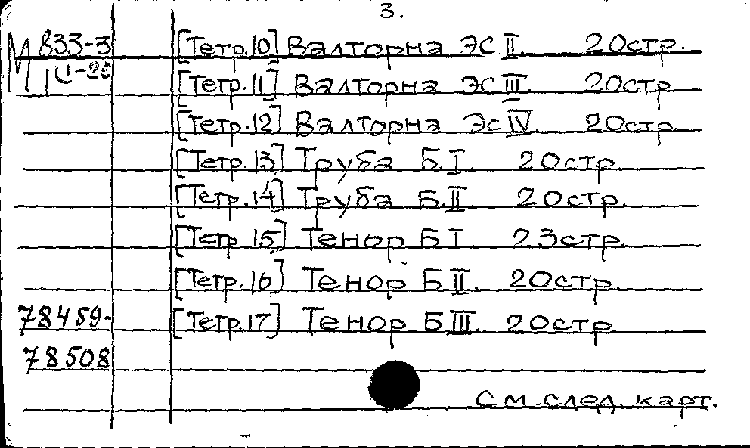 3.
М 833-3 [Тетр.10] Валторна Эс II. 20стр.
[Тетр.11] Валторна Эс III 20стр
[Тетр.12] Валторна Эс IV. 20стр.
[Тетр.13] Труба Б.I. 20стр.
[Тетр.14] Труба Б.II 20стр.
[Тетр.15] Тенор Б I 23стр.
[Тетр.16] Тенор Б II. 20стр.
78459- [Тетр.17] Тенор Б III. 20стр
78508
См след. карт.